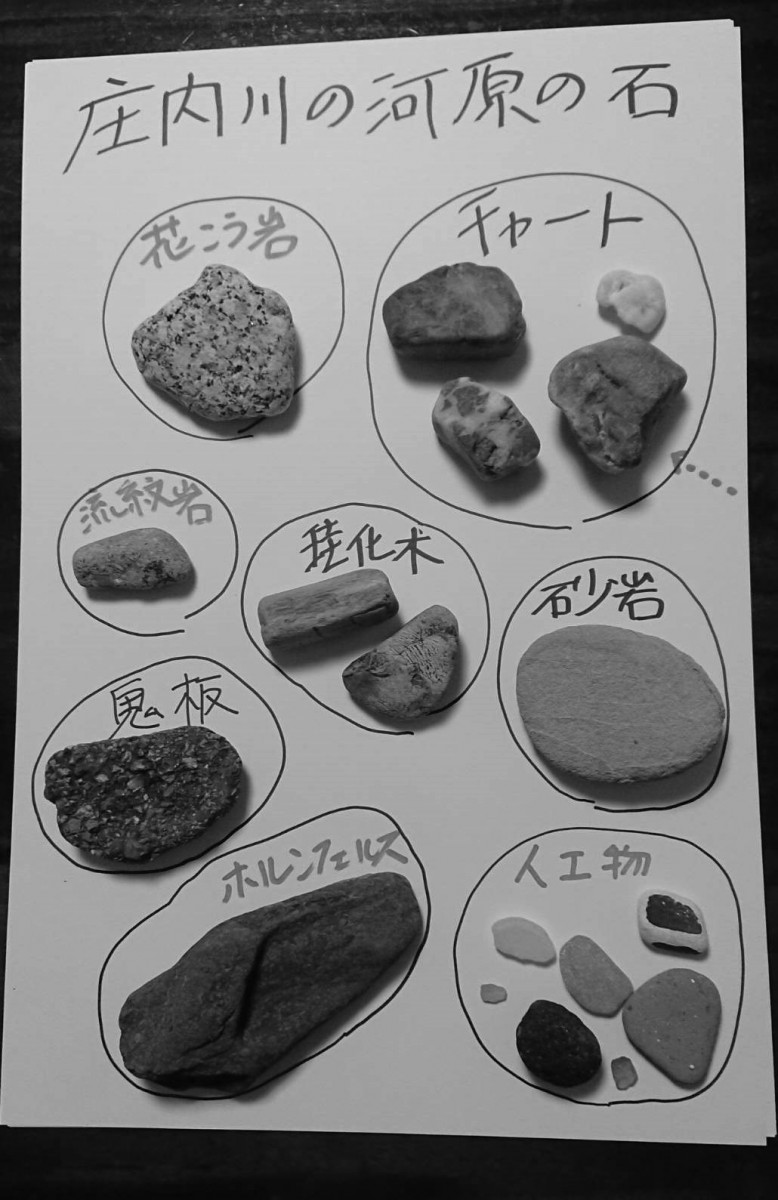 庄内川の河原の石
花こう岩
チャート
流紋岩
珪化木
砂岩
鬼板
ホルンフェルス
人工物